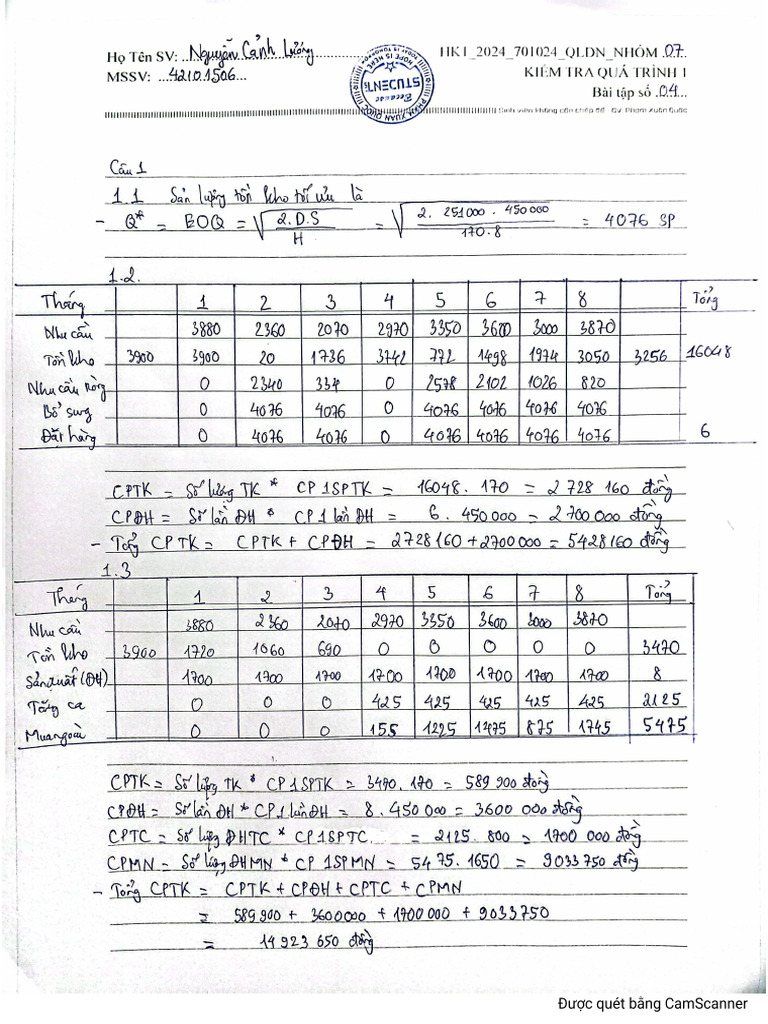 Họ Tên SV: Nguyễn Cảnh Lương HK1_2024_701024_QLDN_NHÓM 07
MSSV: 42101506 KIỂM TRA QUÁ TRÌNH 1
Bài tập số 04
HOPE IS HERE
STUDENT
Because
PHẠM XUÂN QUỐC
Câu 1
1.1 Sản lượng tồn kho tối ưu là
- Q* = EOQ = √(2.D.S / H) = √(2. 251000 . 450000 / 170.8) = 4076 SP
1.2.
Tháng 1 2 3 4 5 6 7 8 Tổng
Nhu cầu 3880 2360 2070 2970 3350 3600 3000 3870
Tồn kho 3900 3900 20 1736 3742 772 1498 1974 3050 3256 16048
Nhu cầu ròng 0 2340 334 0 2578 2102 1026 820
Bổ sung 0 4076 4076 0 4076 4076 4076 4076
Đặt hàng 0 4076 4076 0 4076 4076 4076 4076 6
CPTK = Số lượng TK * CP 1SPTK = 16048. 170 = 2 728 160 đồng
CPĐH = Số lần ĐH * CP 1 lần ĐH = 6. 450 000 = 2 700 000 đồng
- Tổng CPTK = CPTK + CPĐH = 2728160 + 2700000 = 5428160 đồng
1.3
Tháng 1 2 3 4 5 6 7 8 Tổng
Nhu cầu 3880 2360 2070 2970 3350 3600 3000 3870
Tồn kho 3900 1720 1060 690 0 0 0 0 0 3470
Sản xuất (ĐH) 1700 1700 1700 1700 1700 1700 1700 1700 8
Tăng ca 0 0 0 425 425 425 425 425 2125
Mua ngoài 0 0 0 155 1225 1475 875 1745 5475
CPTK = Số lượng TK * CP 1SPTK = 3470. 170 = 589 900 đồng
CPĐH = Số lần ĐH * CP 1 lần ĐH = 8. 450 000 = 3600 000 đồng
CPTC = Số lượng ĐHTC * CP 1SPTC. = 2125. 800 = 1700 000 đồng
CPMN = Số lượng ĐHMN * CP 1SPMN = 5475. 1650 = 9033750 đồng
- Tổng CPTK = CPTK + CPĐH + CPTC + CPMN
= 589900 + 3600000 + 1700000 + 9033750
= 14 923 650 đồng
Được quét bằng CamScanner